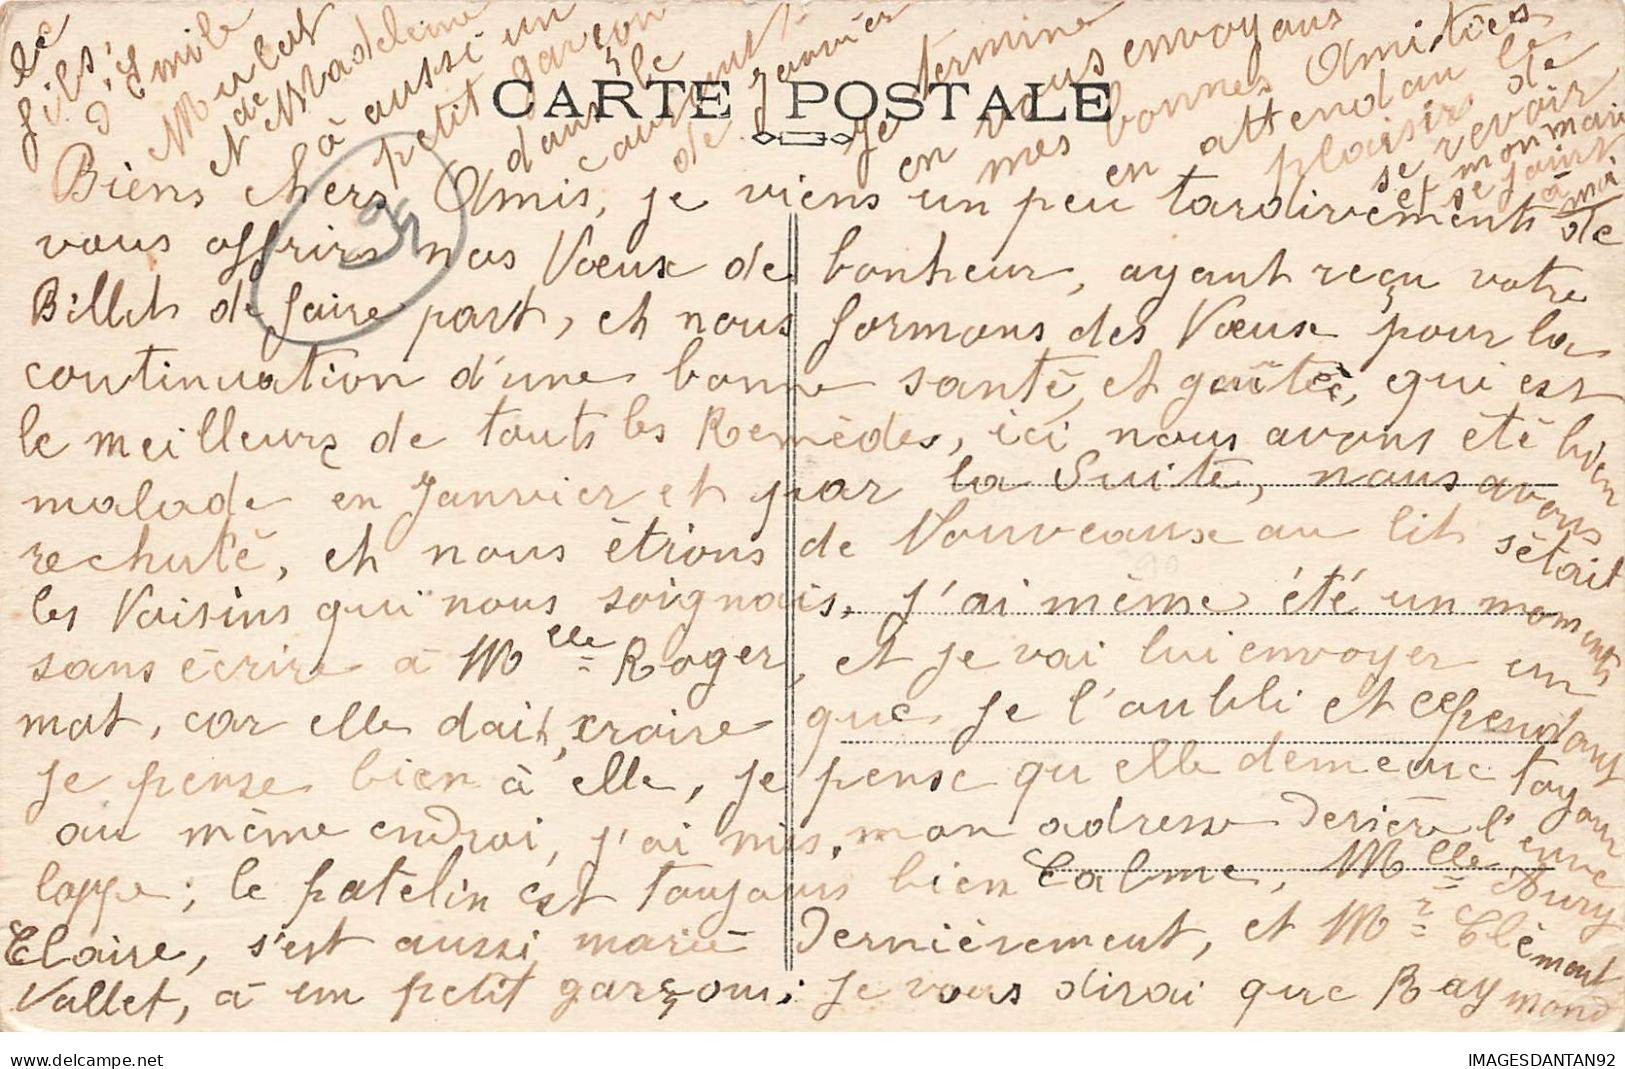 CARTE POSTALE
Biens chers Amis, je viens un peu tardivements de
vous offrirs nos Vœux de bonheur, ayant reçu votre
Billets de faire part, et nous formons des Vœux pour la
continuation d'une bonne santé, et gaîtée, qui est
le meilleurs de touts les Remèdes, ici nous avons été bien
malade en Janvier et par la Suite, nous avons
rechuté, et nous étions de Nouveaux au lit s'était
les Voisins qui nous soignais, j'ai même été un moments
sans écrire à Mlle Roger, et je vai lui envoyer un
mot, car elle doit croire que je l'oubli et cependant
je pense bien à elle, je pense qu'elle demeure toujours
au même endroi, j'ai mis mon adresse derière l'enve
loppe; le patelin est toujours bien Calme, Mlle Aury
Claire, s'est aussi marié dernièrement, et Mr Clément
Vallet, à un petit garçon; je vous dirai que Raymond
le
fils
d'Emile
Mulot
de
N Madeleine
à aussi un
petit garçon
dans le
courant
de Janvier
je termine
en vous envoyans
mes bonnes Amitiées
en attendan le
plaisir de
se revoir
et mon mari
se joint
à moi
IMAGESDANTAN92